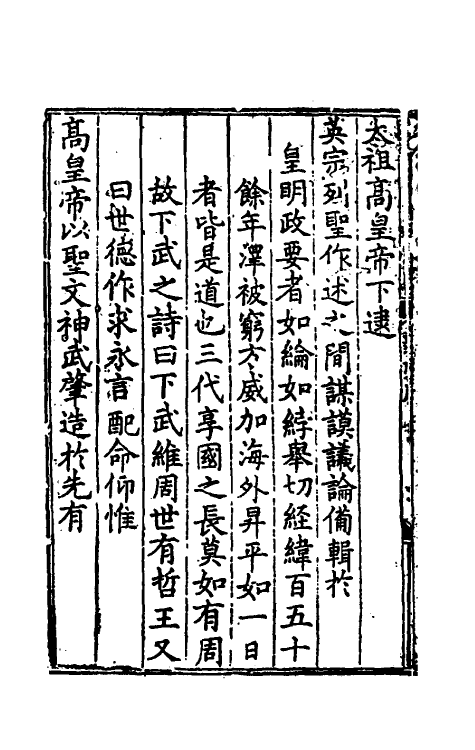 太祖高皇帝下逮
英宗列聖作述之間謀謨議論備輯於
皇明政要者如綸如綍舉切經緯百五十
餘年澤被窮方威加海外昇平如一日
者皆是道也三代享國之長莫如有周
故下武之詩曰下武維周世有哲王又
曰世德作求永言配命仰惟
高皇帝以聖文神武肇造於先有